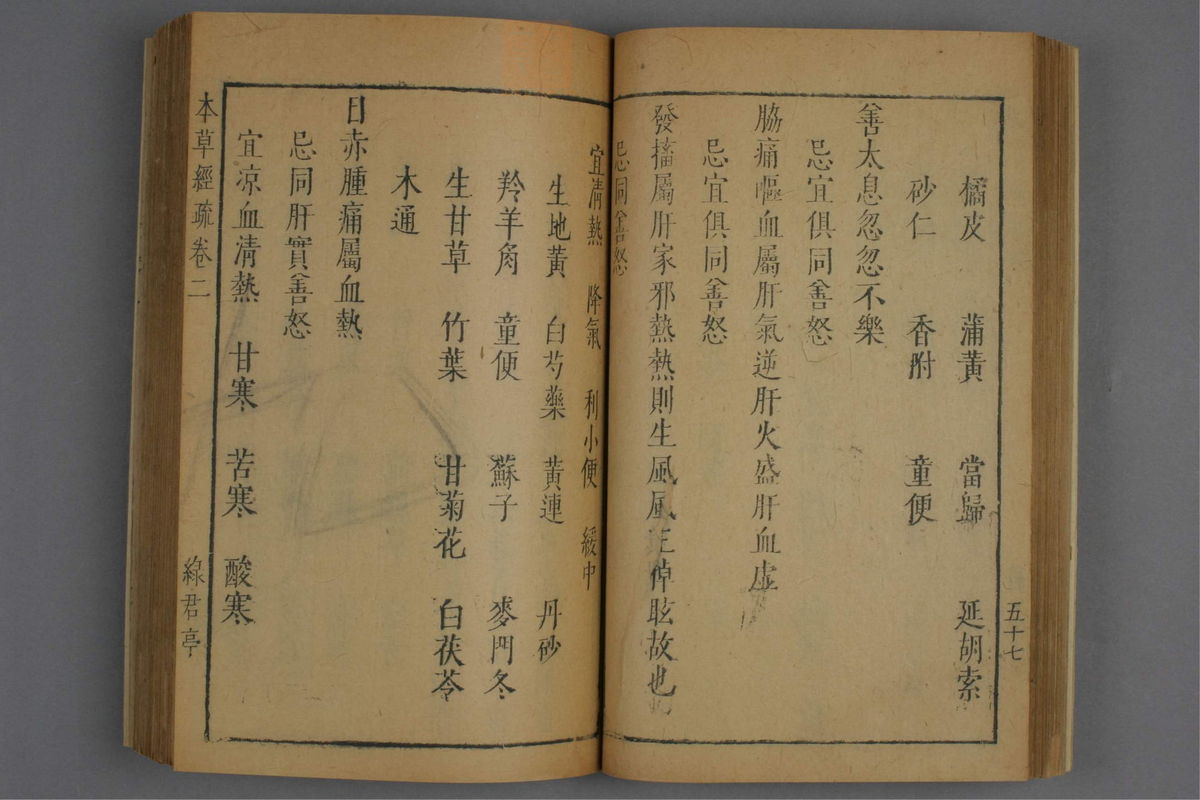 橘皮　蒲黃　當歸　延胡索
砂仁　香附　童便
善太息忽忽不樂
忌宜俱同善怒
脇痛嘔血屬肝氣逆肝火盛肝血虛
忌宜俱同善怒
發搐屬肝家邪熱熱則生風風主掉眩故也
忌同善怒
五十七
宜清熱　降氣　利小便　緩中
生地黃　白芍藥　黃連　丹砂
羚羊角　童便　蘇子　麥門冬
生甘草　竹葉　甘菊花　白茯苓
木通
目赤腫痛屬血熱
忌同肝實善怒
宜凉血清熱　甘寒　苦寒　酸寒
本草經疏卷二
綠君亭